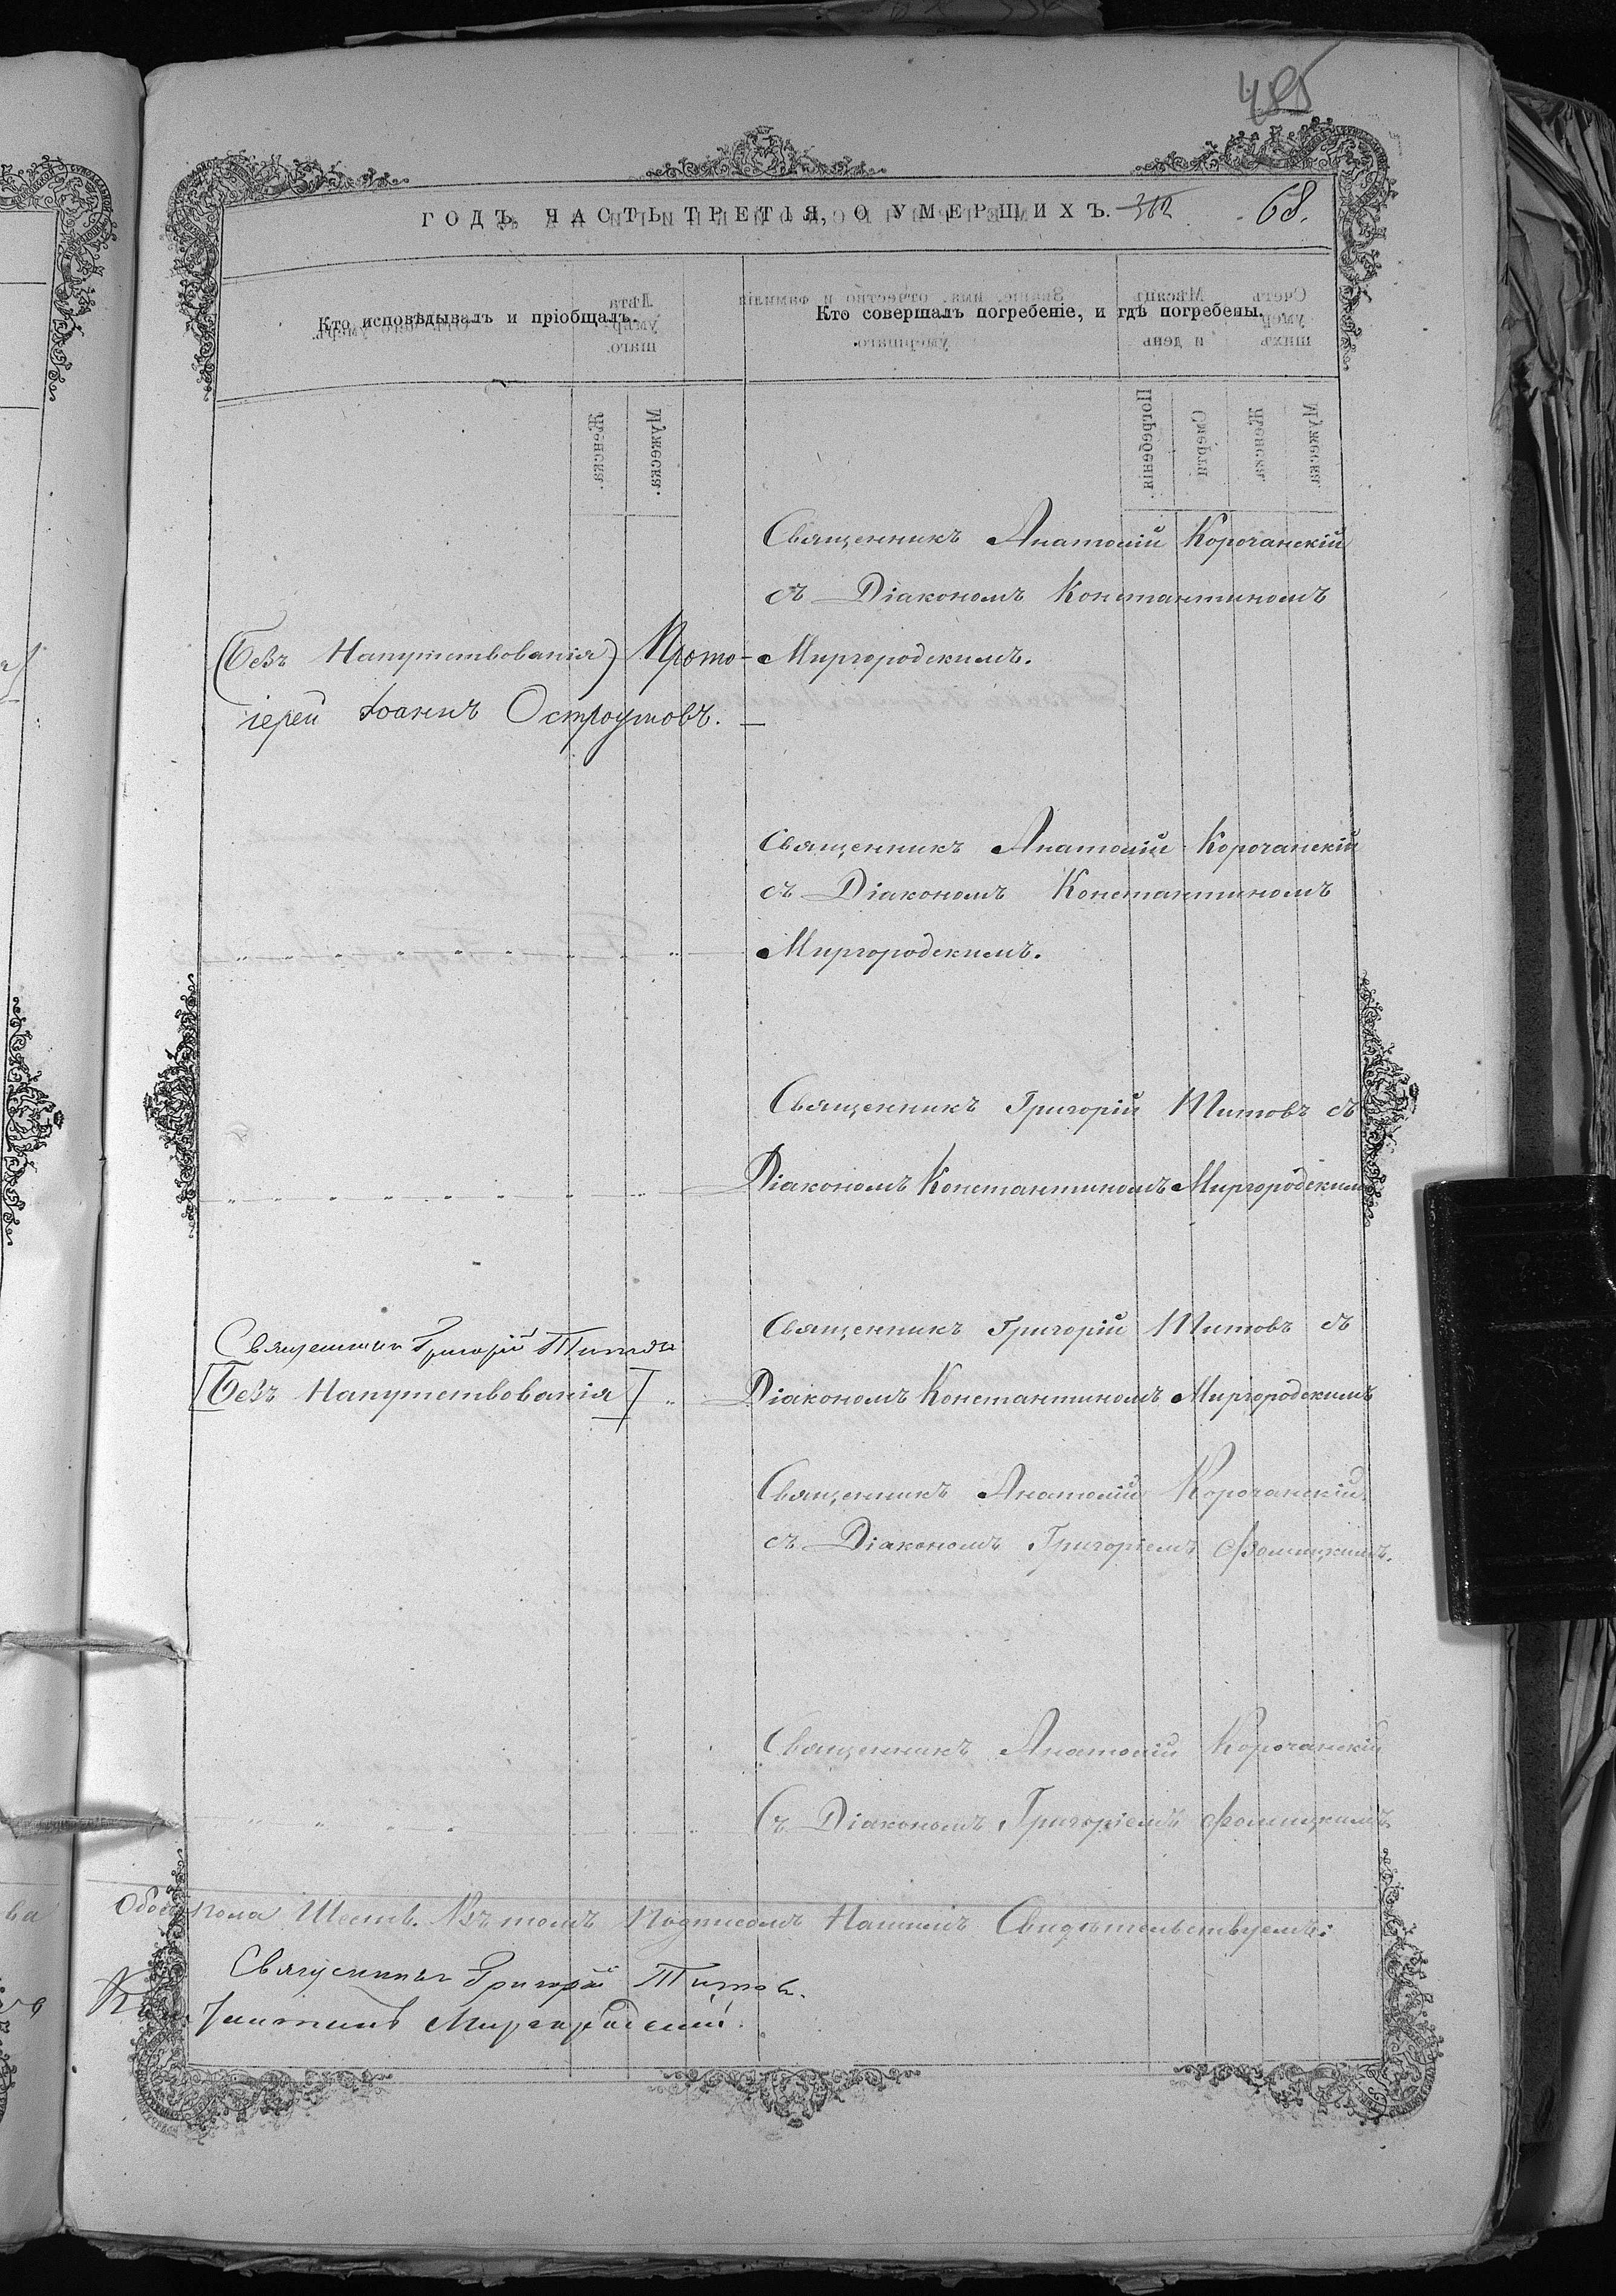 485
ГОДЪ ЧАСТЬ ТРЕТІЯ, О УМЕРШИХЪ. 312 68.
Кто исповѣдывалъ и пріобщалъ.
Кто совершалъ погребеніе, и гдѣ погребены.
Священникъ Анатолій Корочанскій
съ Діакономъ Константиномъ
(Безъ Напутствованія) Прото-
Миргородскимъ.
іерей Іоаннъ Остроумовъ.
Священникъ Анатолій Корочанскій
съ Діакономъ Константиномъ
Миргородскимъ.
Священникъ Григорій Титовъ съ
Діакономъ Константиномъ Миргородскимъ
Священникъ Григорій Титовъ
Священникъ Григорій Титовъ съ
[Безъ Напутствованія]
Діакономъ Константиномъ Миргородскимъ
Священникъ Анатолій Корочанскій
съ Діакономъ Григоріемъ Фомицкимъ.
Священникъ Анатолій Корочанскій
Съ Діакономъ Григоріемъ Фомицкимъ
Обоего пола Шесть. Въ томъ Подписомъ Нашимъ Свидѣтельствуемъ:
Священникъ Григорій Титовъ.
Миргородскій.